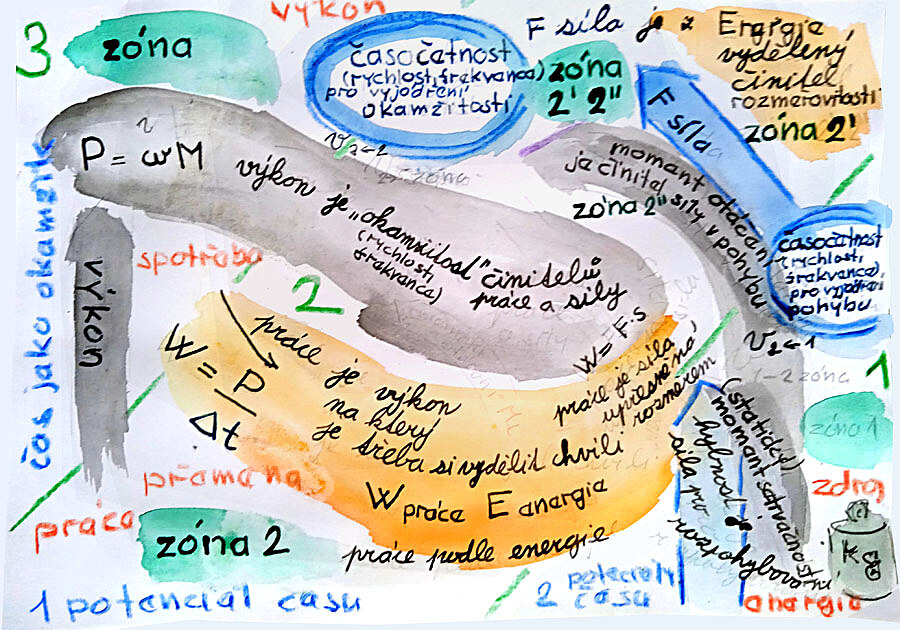 3
zóna
výkon
časočetnost
(rychlost, frekvence)
pro vyjádření
okamžitosti
F síla je z
Energie
vydělený
činitel
rozměrovitosti
zóna 2'
zóna
2' 2"
F síla
P = ωM
v₃₋₂
výkon je „okamžitost" činitelů
(rychlost,
frekvence)
práce a síly
moment otáčení
je činitel síly v pohybu
zóna 2"
časočetnost
(rychlost,
frekvence),
pro vyjádření
pohybu
v₂₋₁
1-2 zóna
1
zóna 1
čas jako okamžik
výkon
spotřeba
2
W = P
Δt
práce je výkon
na který
je třeba si vydělit chvíli
W = F·s
práce je síla
upřesněná
rozměrem
W práce E energie
práce podle energie
přeměna
práce
zóna 2
(statický)
moment setrvačnosti
hybnost je
síla pro
rozpohybování
zdroj
kg
energie
1 potenciál času
2 potenciály
času